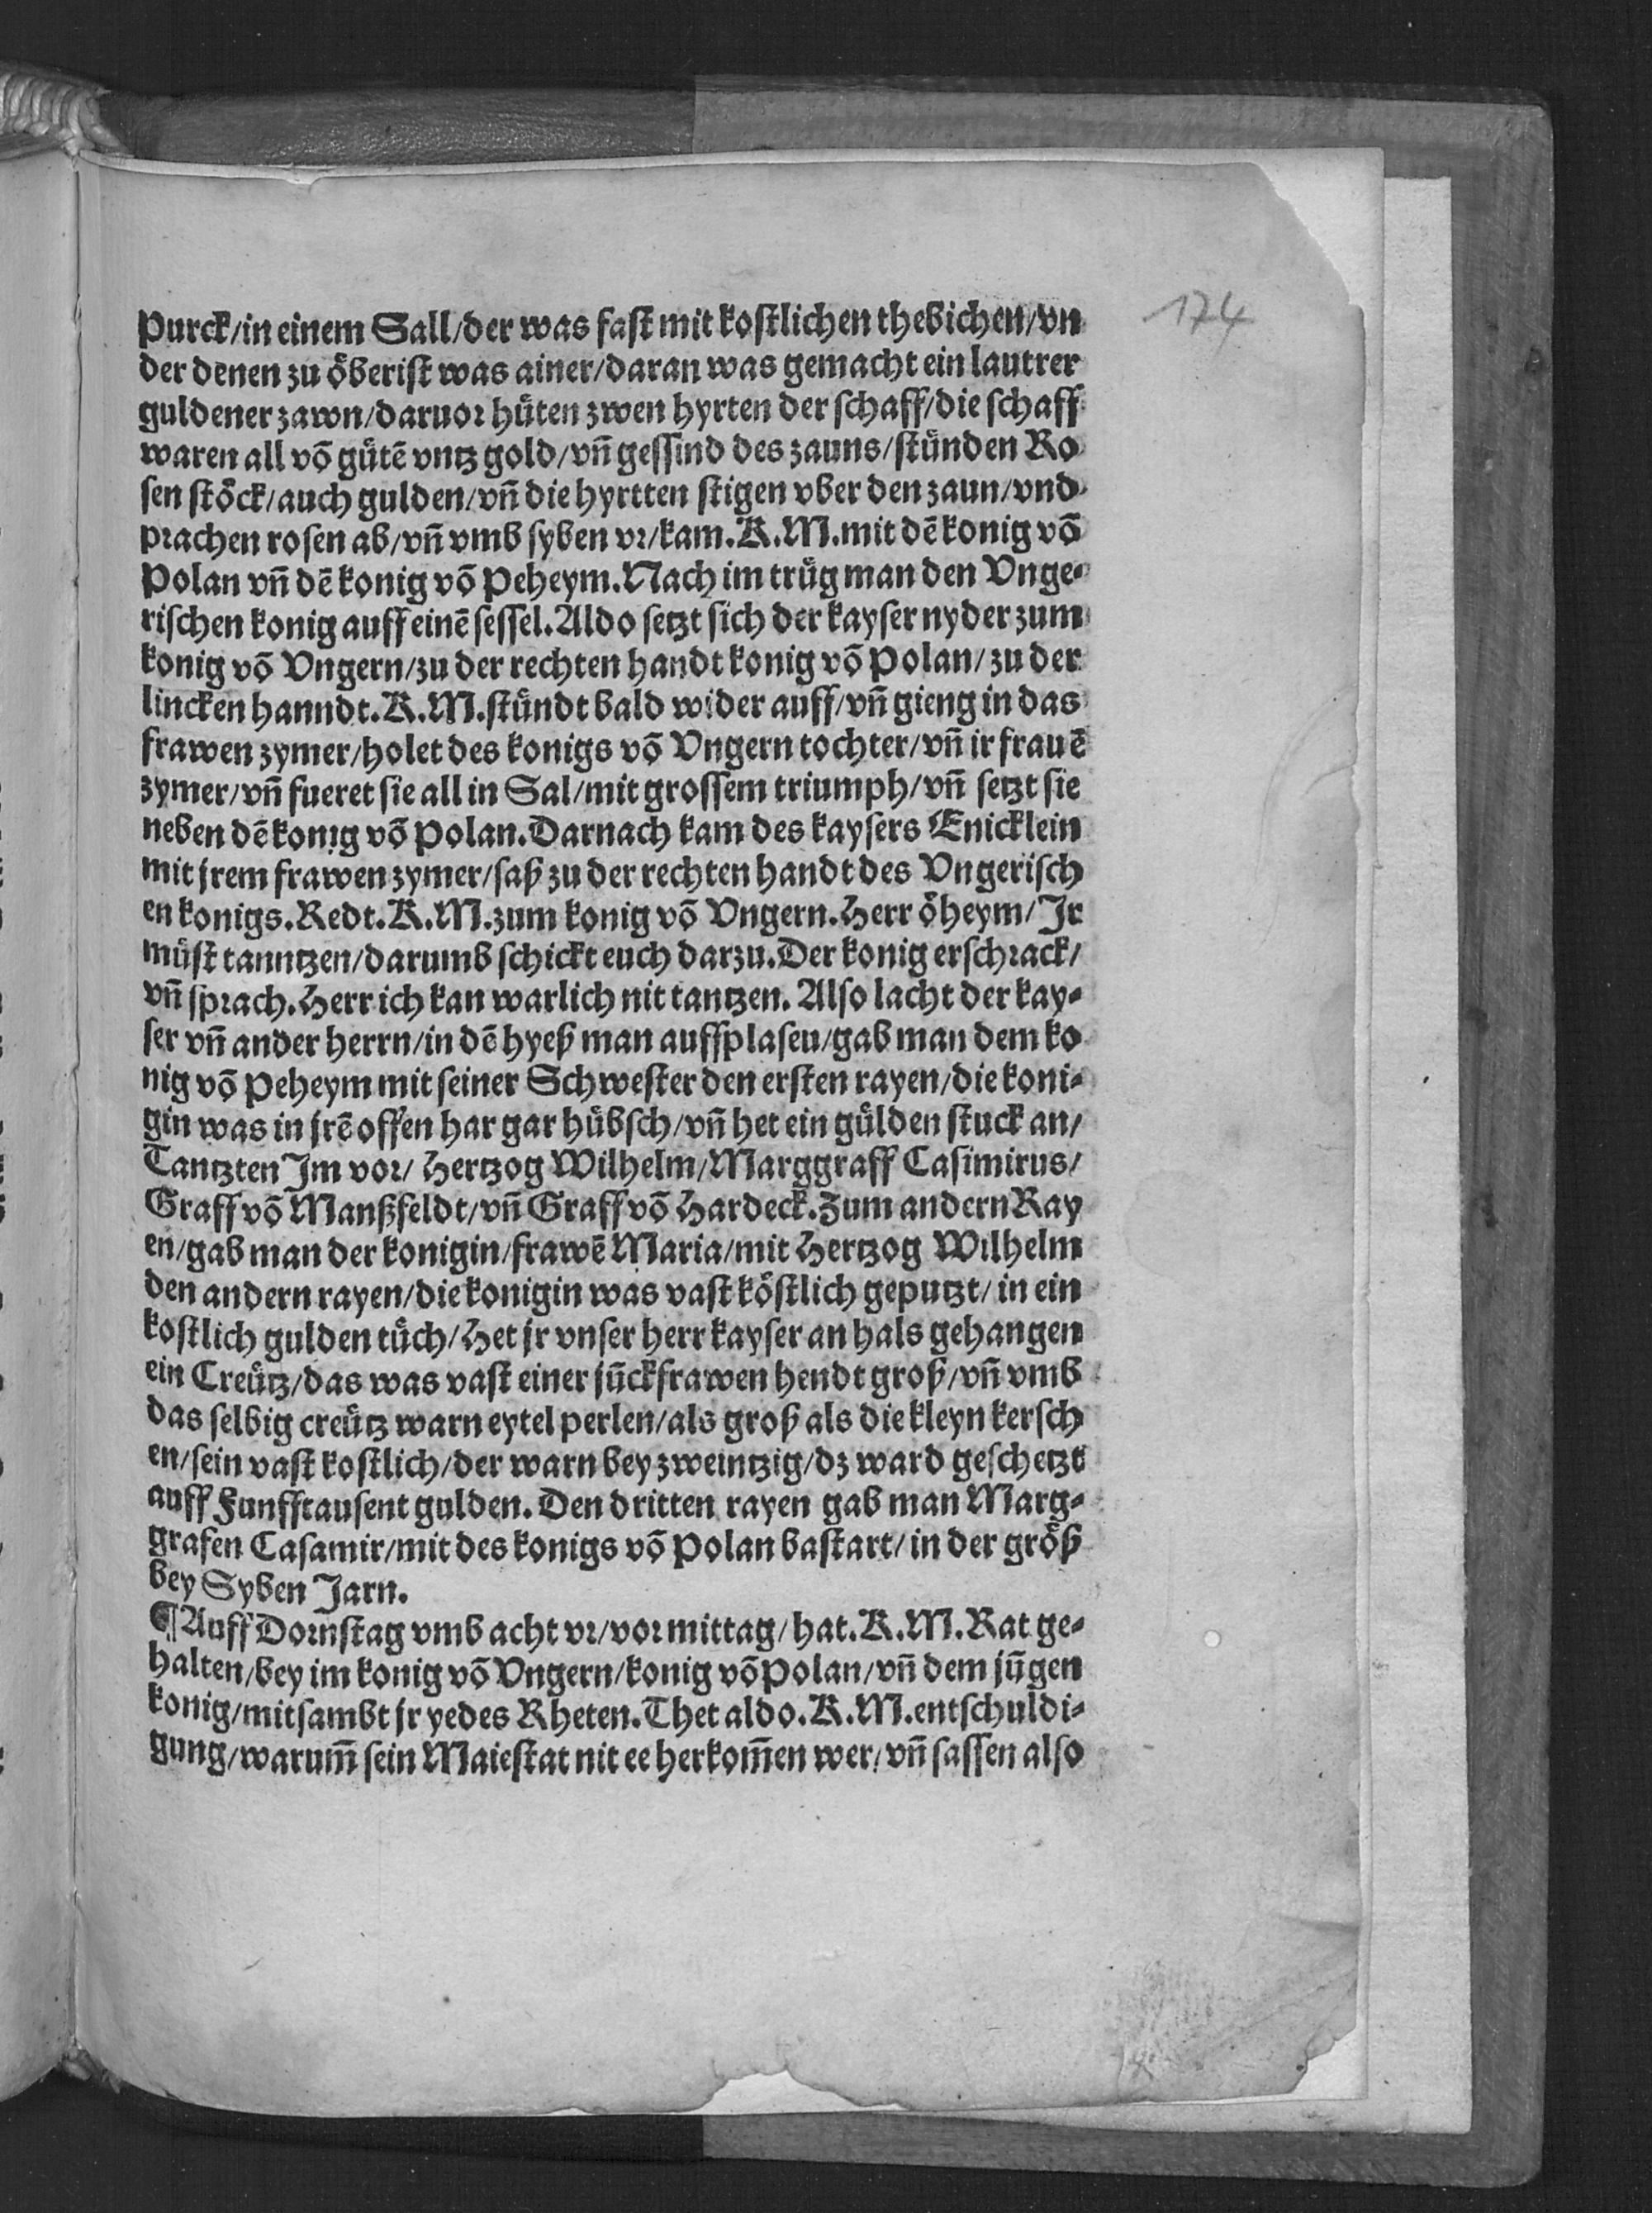 174
Purck/in einem Sall/der was fast mit kostlichen thebichen/vn
der denen zu öberist was ainer/daran was gemacht ein lautrer
guldener zawn/daruor hüten zwen hyrten der schaff/die schaff
waren all võ gütẽ vntz gold/vñ gessind des zauns/stünden Ro
sen stöck/auch gulden/vñ die hyrtten stigen vber den zaun/vnd
prachen rosen ab/vñ vmb syben vr/kam.K.M.mit dẽ konig võ
Polan vñ dẽ konig võ Peheym.Nach im trüg man den Vnge⸗
rischen konig auff einẽ sessel.Aldo setzt sich der kayser nyder zum
konig võ Vngern/zu der rechten handt konig võ Polan/zu der
lincken hanndt.K.M.stündt bald wider auff/vñ gieng in das
frawen zymer/holet des konigs võ Vngern tochter/vñ ir frauẽ
zymer/vñ fueret sie all in Sal/mit grossem triumph/vñ setzt sie
neben dẽ konig võ Polan.Darnach kam des kaysers Enicklein
mit jrem frawen zymer/saß zu der rechten handt des Vngerisch
en konigs.Redt.K.M.zum konig võ Vngern.Herr öheym/Jr
müst tanntzen/darumb schickt euch darzu.Der konig erschrack/
vñ sprach.Herr ich kan warlich nit tantzen. Also lacht der kay⸗
ser vñ ander herrn/in dẽ hyeß man auffplasen/gab man dem ko
nig võ Peheym mit seiner Schwester den ersten rayen/die koni⸗
gin was in jrẽ offen har gar hübsch/vñ het ein gülden stuck an/
Tantzten Jm vor/ Hertzog Wilhelm/Marggraff Casimirus/
Graff võ Manßfeldt/vñ Graff võ Hardeck.Zum andern Ray
en/gab man der konigin/frawẽ Maria/mit Hertzog Wilhelm
den andern rayen/die konigin was vast köstlich geputzt/in ein
kostlich gulden tüch/Het jr vnser herr kayser an hals gehangen
ein Creütz/das was vast einer jũckfrawen hendt groß/vñ vmb
das selbig creütz warn eytel perlen/als groß als die kleyn kersch
en/sein vast kostlich/der warn bey zweintzig/dz ward geschetzt
auff Funfftausent gulden. Den dritten rayen gab man Marg⸗
grafen Casamir/mit des konigs võ Polan bastart/in der größ
bey Syben Jarn.
¶Auff Dornstag vmb acht vr/vor mittag/hat.K.M.Rat ge⸗
halten/bey im konig võ Vngern/konig võ Polan/vñ dem jũgen
konig/mitsambt jr yedes Rheten.Thet aldo.K.M.entschuldi⸗
gung/warum̃ sein Maiestat nit ee herkom̃en wer/vñ sassen also